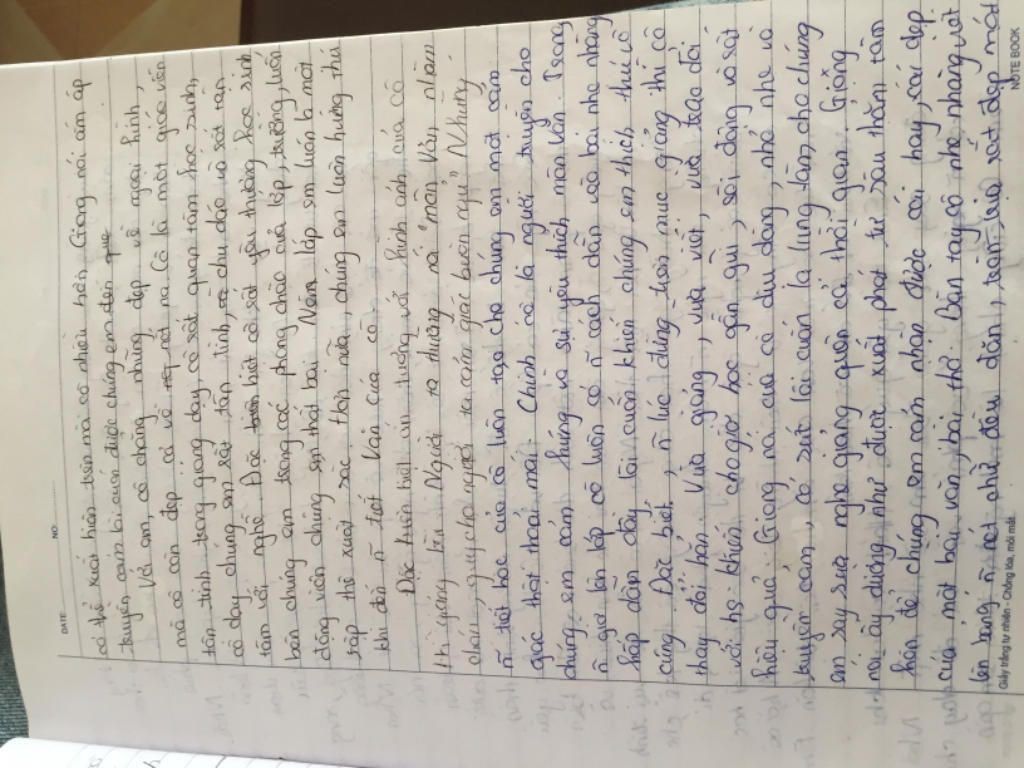 DATE
NO.
có thể xuất hiện trên môi cô nhiều hơn. Giọng nói ấm áp
truyền cảm lôi cuốn được chúng em đến
Với em, cô chẳng những đẹp về ngoại hình,
mà cô còn đẹp cả về nết na. Cô là một giáo viên
tận tình trong giảng dạy, cô rất quan tâm học sinh,
cô dạy chúng em rất tận tình, chu đáo và rất tận
tâm với nghề. Đặc biệt cô rất yêu thương học sinh
bọn chúng em trong các phong trào của lớp, trường, luôn
động viên chúng em thật bại. Năm lớp em luôn là một
tập thể xuất sắc. Hơn nữa, chúng em luôn hứng thú
khi đến ~ tiết Văn của cô.
Đặc biệt ấn tượng với hình ảnh của cô
khi giảng bài. Người ta thường nói "môn Văn nhàm
chán, gây cho người ta cảm giác buồn ngủ". Nhưng
~ tiết học của cô luôn tạo cho chúng em một cảm
giác thật thoải mái. Chính cô là người truyền cho
chúng em cảm hứng và sự yêu thích môn Văn. Trong
~ giờ lên lớp cô luôn có ~ cách dẫn vào bài nhẹ nhàng
hấp dẫn đầy lôi cuốn khiến chúng em thích thú vô
cùng. Đặc biệt, ~ lúc đứng trên mục giảng thì cô
thay đổi hẳn. Vừa giảng, vừa viết, vừa trao đổi
với hs khiến cho giờ học gần gũi, sôi động và rất
hiệu quả. Giọng nói của cô dịu dàng, nhỏ nhẹ và
truyền cảm, có sức lôi cuốn lạ lùng làm cho chúng
em say sưa nghe giảng quên cả thời gian. Giọng
nói ấy dường như được xuất phát từ sâu thẳm tâm
hồn để chúng em cảm nhận được cái hay, cái đẹp
của một bài văn, bài thơ. Bàn tay cô nhẹ nhàng viết
lên bảng ~ nét chữ đều đặn, trông rất đẹp mắt
Giấy trắng tự nhiên - Chống lóa, mỏi mắt.
NOTE BOOK